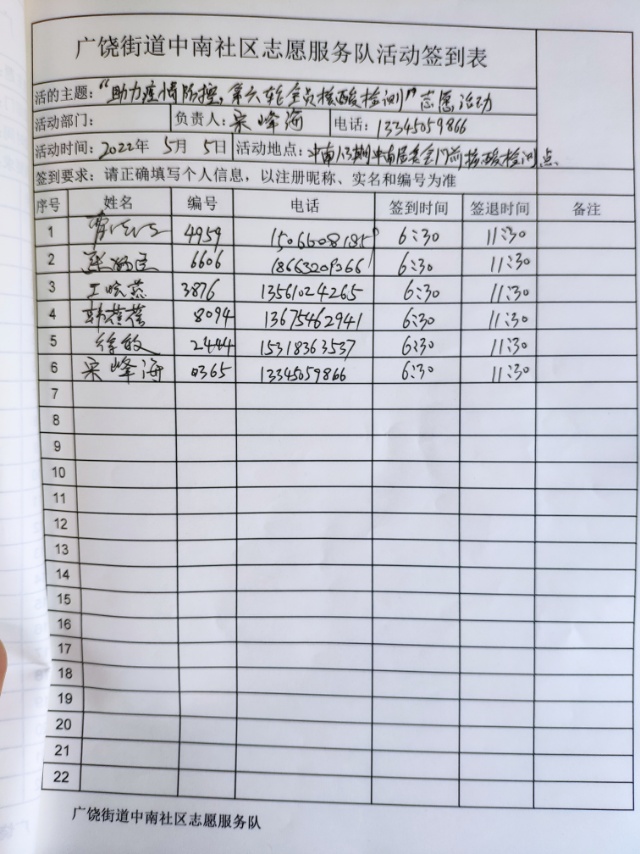 广饶街道中南社区志愿服务队活动签到表
活的主题：“助力疫情防控，第六轮全员核酸检测”志愿活动
活动部门： 负责人：宋峰海 电话：13345059866
活动时间：2022年5月5日 活动地点：中南1.3期中南居委会门前核酸检测点
签到要求：请正确填写个人信息，以注册昵称、实名和编号为准
序号 姓名 编号 电话 签到时间 签退时间 备注
1 4959 6:30 11:30
2 6606 18663209366 6:30 11:30
3 王晓燕 3876 13561024265 6:30 11:30
4 韩蕉蕉 8094 13675462941 6:30 11:30
5 徐敏 2444 15318363537 6:30 11:30
6 宋峰海 0365 13345059866 6:30 11:30
7
8
9
10
11
12
13
14
15
16
17
18
19
20
21
22
广饶街道中南社区志愿服务队